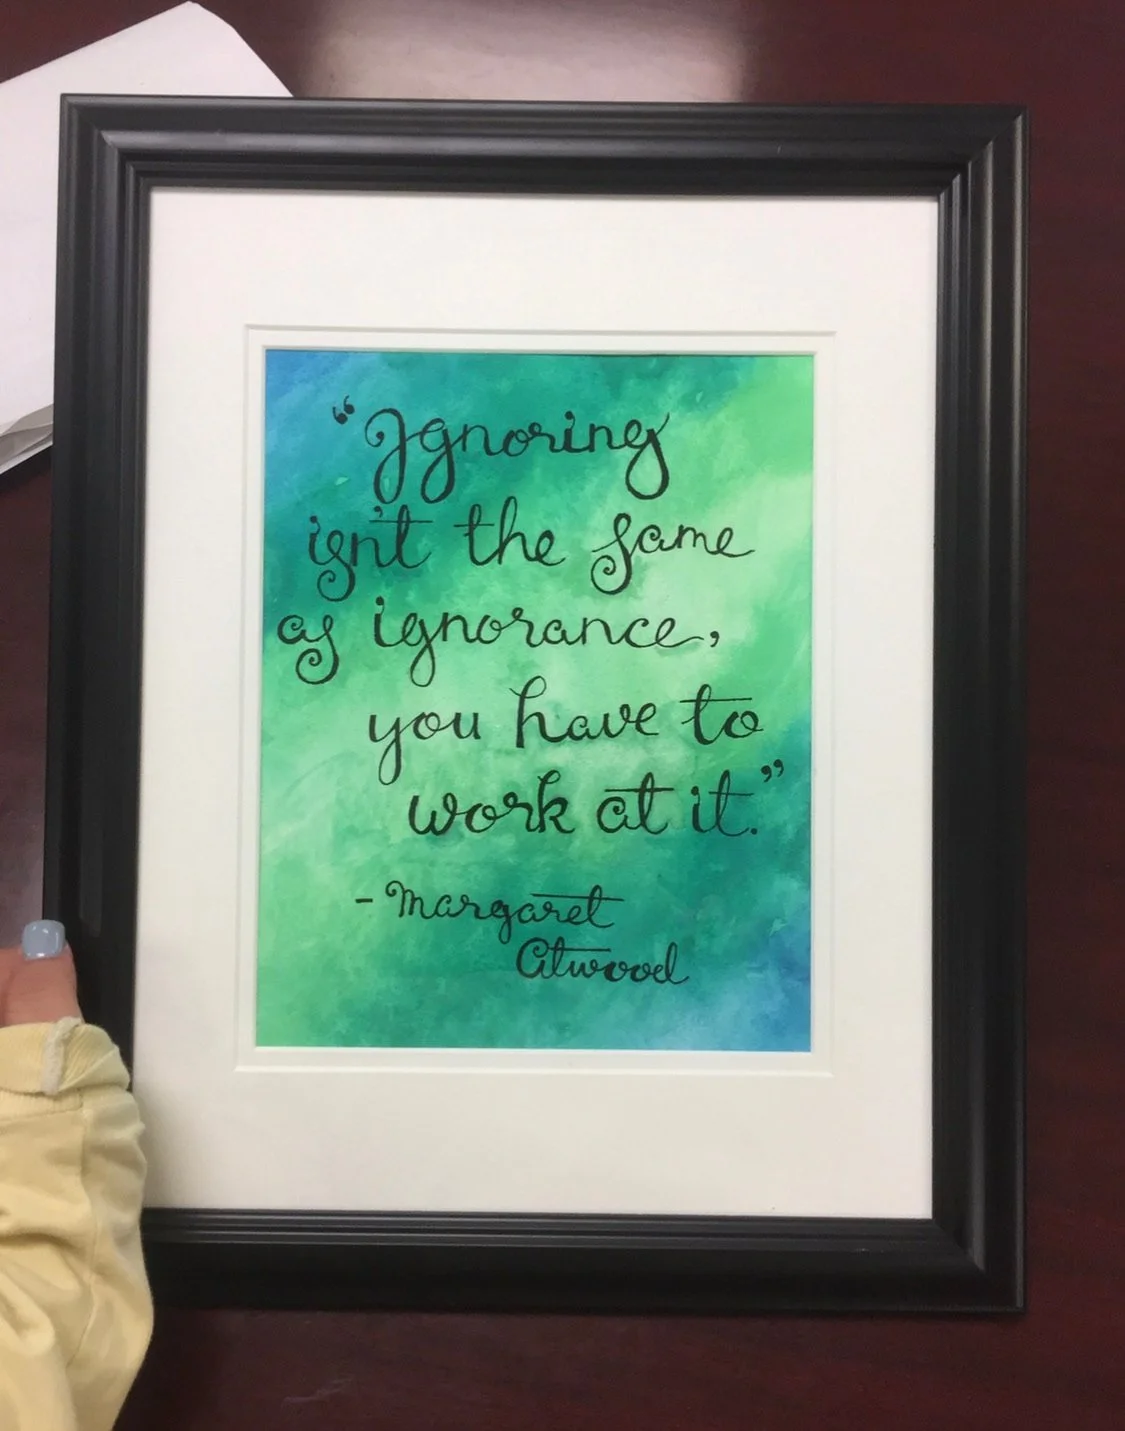 “Ignoring
isn't the same
as ignorance,
you have to
work at it.”
- Margaret
Atwood